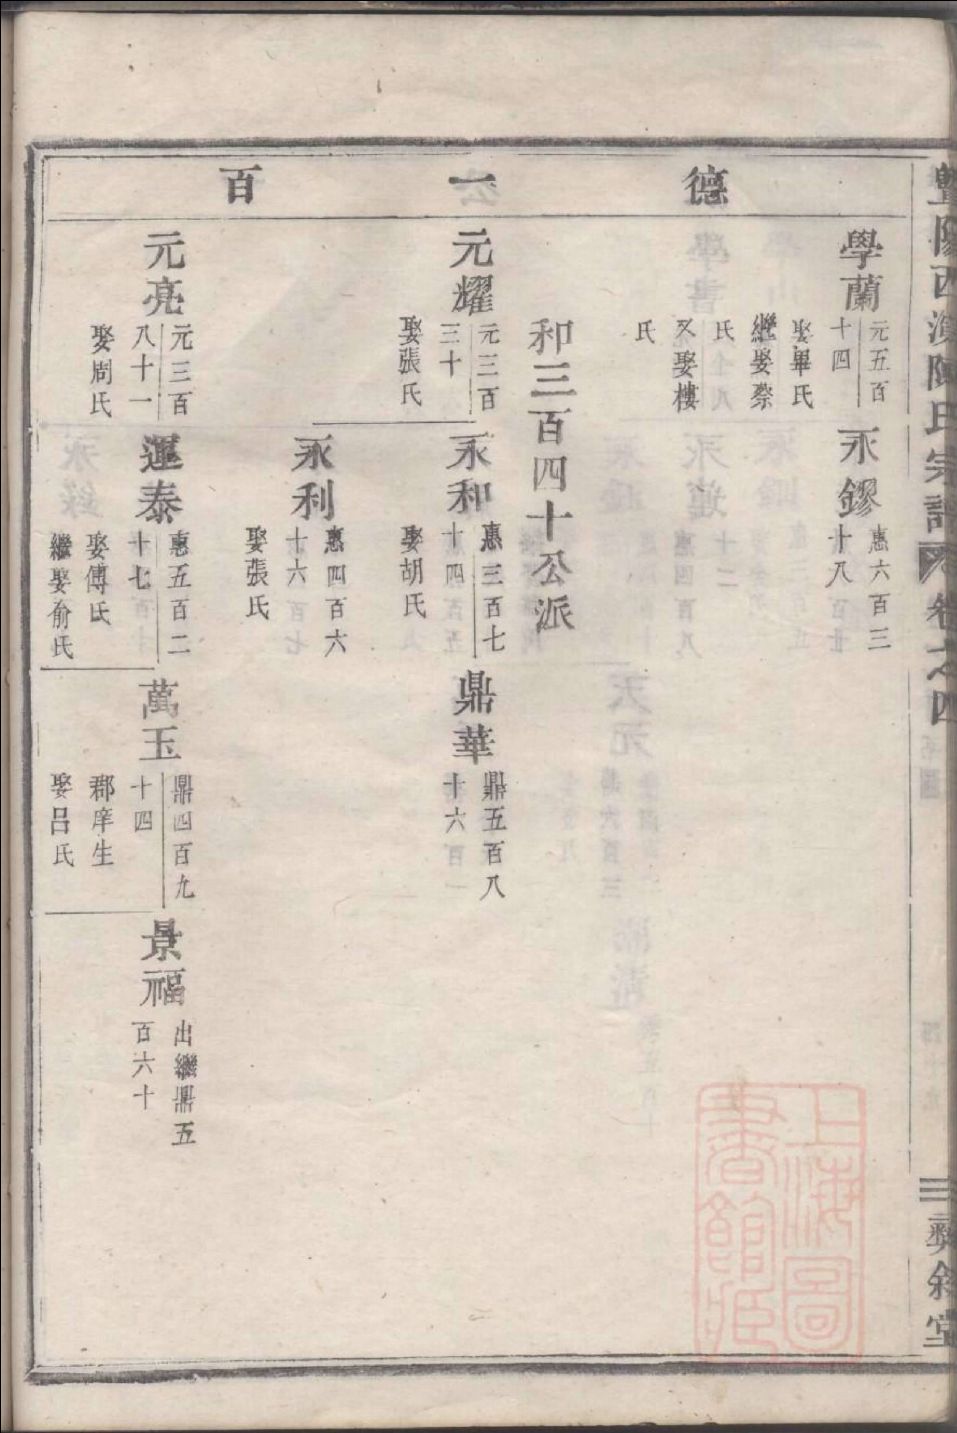 暨陽西濱陳氏宗譜
卷之四
彝敘堂
德一百
學蘭
元五百
十四
娶畢氏
繼娶蔡
氏
又娶樓
氏
永鏐
惠六百三
十八
和三百四十公派
元耀
元三百
三十
娶張氏
永和
惠三百七
十四
娶胡氏
鼎華
鼎五百八
十六
永利
惠四百六
十六
娶張氏
元亮
元三百
八十一
娶周氏
運泰
惠五百二
十七
娶傅氏
繼娶俞氏
萬玉
鼎四百九
十四
郡庠生
娶呂氏
景福
出繼鼎五
百六十
上海圖
書館藏